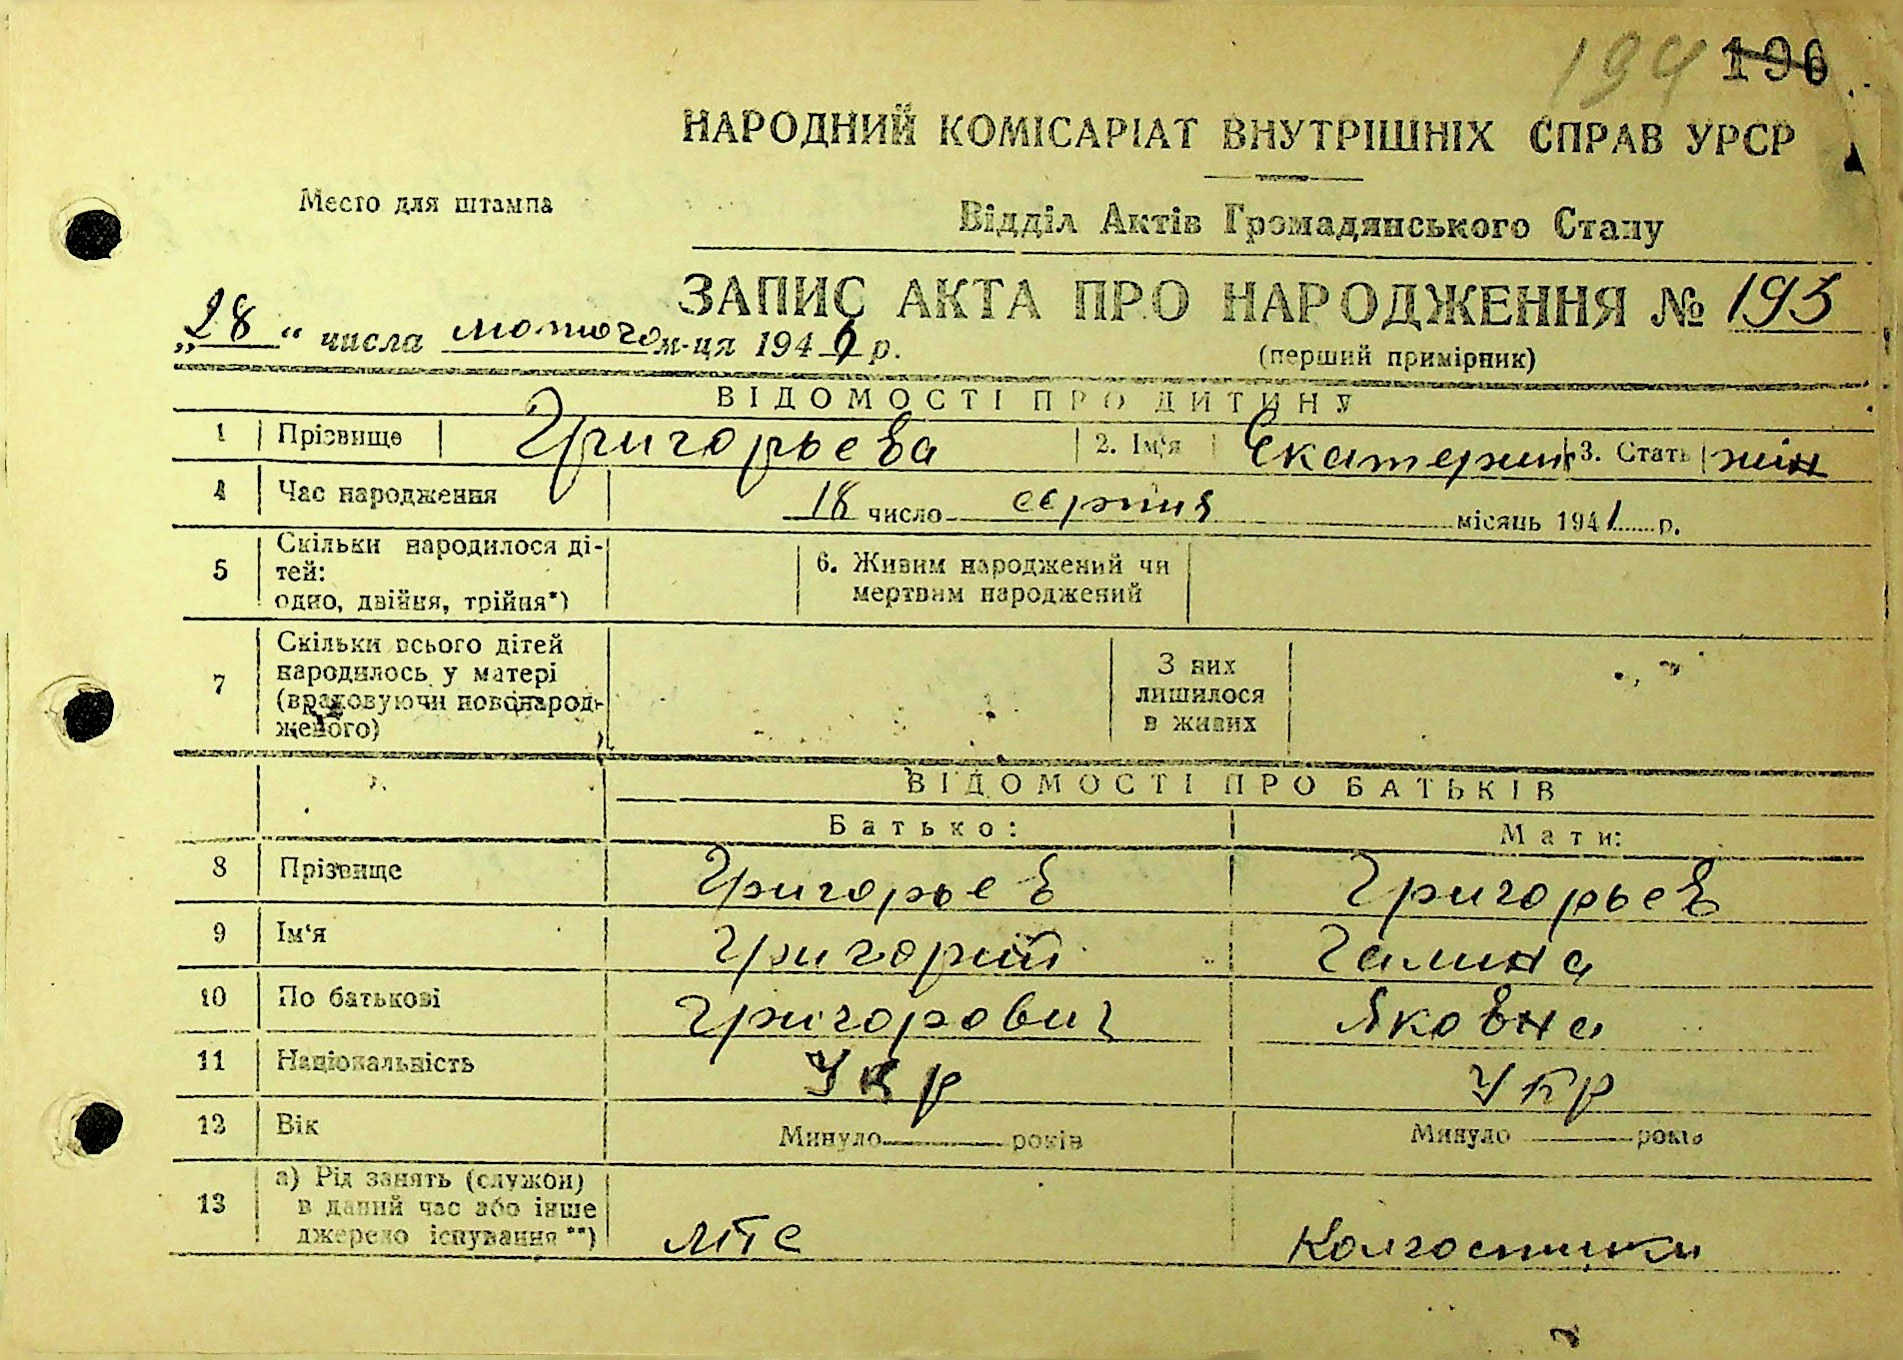 194 196
НАРОДНИЙ КОМІСАРІАТ ВНУТРІШНІХ СПРАВ УРСР
Место для штампа
Відділ Актів Громадянського Стану
ЗАПИС АКТА ПРО НАРОДЖЕННЯ № 193
„28" числа лютого м-ця 194 р.
(перший примірник)
ВІДОМОСТІ ПРО ДИТИНУ
1 Прізвище Григорьева 2. Ім'я Екатерин 3. Стать жін
4 Час народження 18 число серпня місяць 1941 р.
5 Скільки народилося ді-
тей:
одно, двійня, трійня*)
6. Живим народжений чи
мертвим народжений
7 Скільки всього дітей
народилось у матері
(враховуючи новонарод-
женого)
З них
лишилося
в живих
ВІДОМОСТІ ПРО БАТЬКІВ
Батько: Мати:
8 Прізвище Григорьев Григорьев
9 Ім'я Григорий Галина
10 По батькові Григорович Яковна
11 Національність Укр Укр
12 Вік Минуло років Минуло років
13 а) Рід занять (служби)
в даний час або інше
джерело існування **)
МТС Колгоспниця